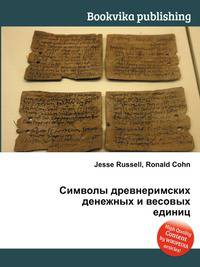 Bookvika publishing
Jesse Russell, Ronald Cohn
Символы древнеримских
денежных и весовых
единиц
High Quality
Content
by WIKIPEDIA
articles!